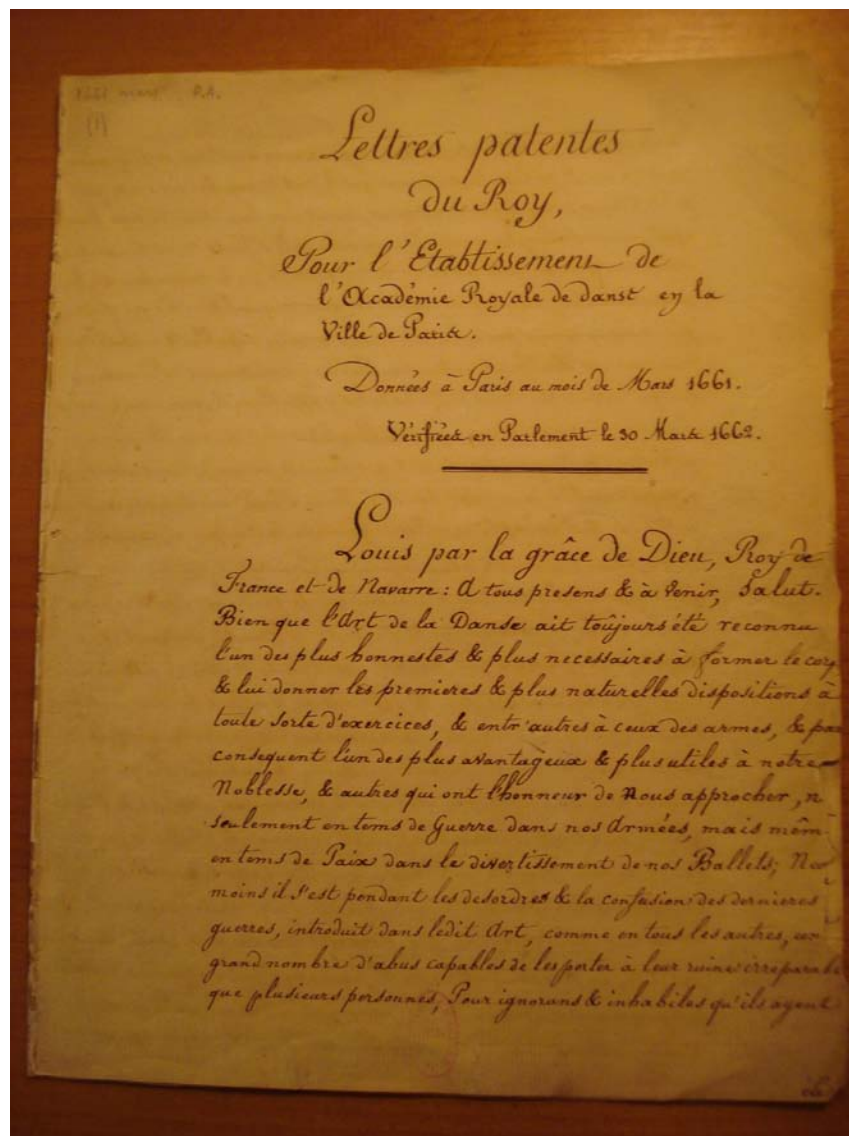 1661 mars P.A.
(1)
Lettres patentes
du Roy,
Pour l'Etablissement de
l'Académie Royale de danse en la
Ville de Paris.
Données à Paris au mois de Mars 1661.
Vérifiées en Parlement le 30 Mars 1662.
Louis par la grâce de Dieu, Roy de
France et de Navarre: A tous presens & à venir, Salut.
Bien que l'Art de la Danse ait toûjours été reconnu
l'un des plus honnestes & plus necessaires à former le corp
& lui donner les premieres & plus naturelles dispositions à
toute sorte d'exercices, & entr'autres à ceux des armes, & par
consequent l'un des plus avantageux & plus utiles à notre
Noblesse, & autres qui ont l'honneur de Nous approcher, n
seulement en tems de Guerre dans nos Armées, mais mêm
en tems de Paix dans le divertissement de nos Ballets; Ne
moins il s'est pendant les desordres & la confusion des dernieres
guerres, introduit dans ledit Art, comme en tous les autres, un
grand nombre d'abus capables de les porter à leur ruine irreparable
que plusieurs personnes, Pour ignorans & inhabiles qu'ils ayent